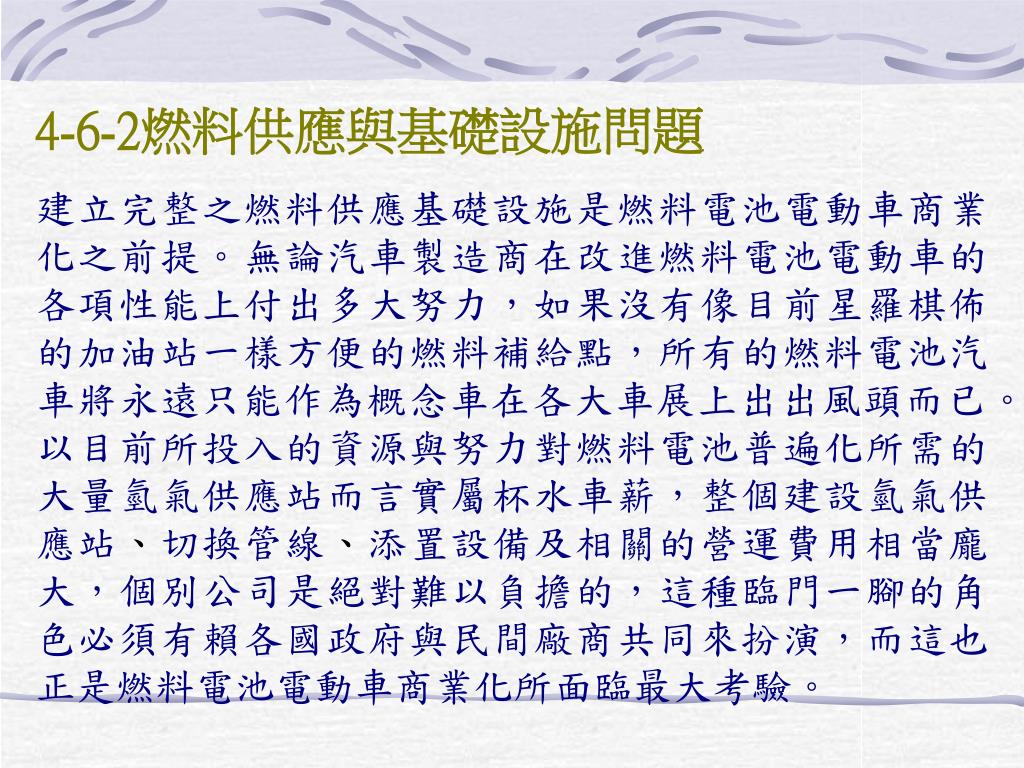 4-6-2燃料供應與基礎設施問題
建立完整之燃料供應基礎設施是燃料電池電動車商業
化之前提。無論汽車製造商在改進燃料電池電動車的
各項性能上付出多大努力，如果沒有像目前星羅棋佈
的加油站一樣方便的燃料補給點，所有的燃料電池汽
車將永遠只能作為概念車在各大車展上出出風頭而已。
以目前所投入的資源與努力對燃料電池普遍化所需的
大量氫氣供應站而言實屬杯水車薪，整個建設氫氣供
應站、切換管線、添置設備及相關的營運費用相當龐
大，個別公司是絕對難以負擔的，這種臨門一腳的角
色必須有賴各國政府與民間廠商共同來扮演，而這也
正是燃料電池電動車商業化所面臨最大考驗。